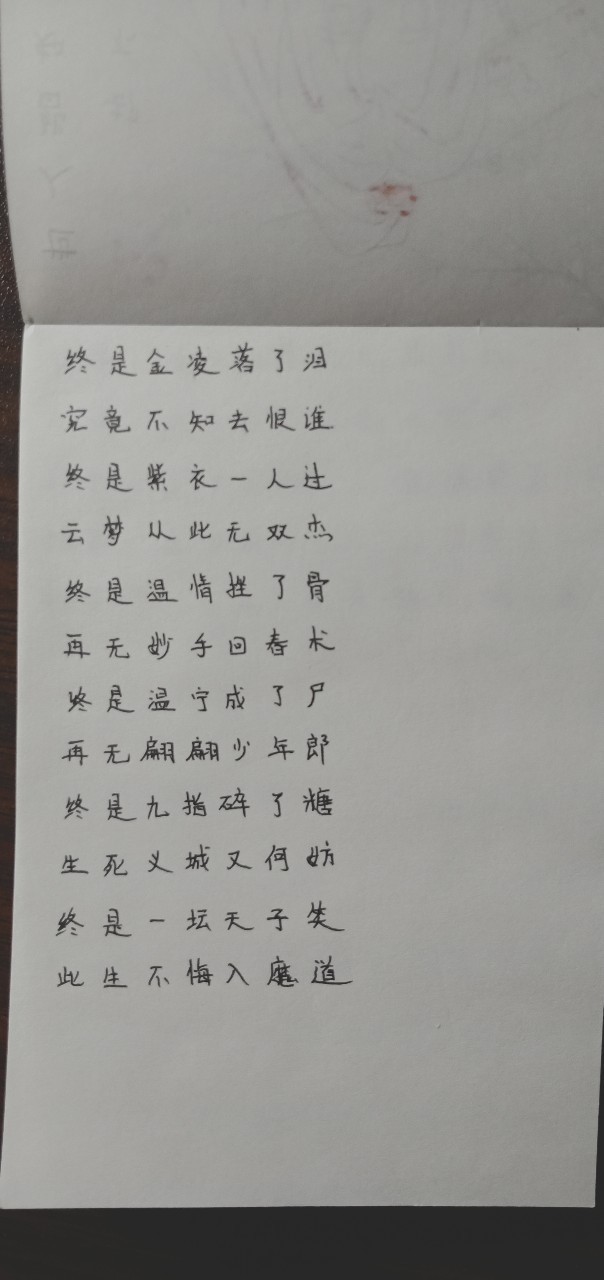 终是金凌落了泪
究竟不知去恨谁
终是紫衣一人过
云梦从此无双杰
终是温情挫了骨
再无妙手回春术
终是温宁成了尸
再无翩翩少年郎
终是九指碎了糖
生死义城又何妨
终是一坛天子笑
此生不悔入魔道